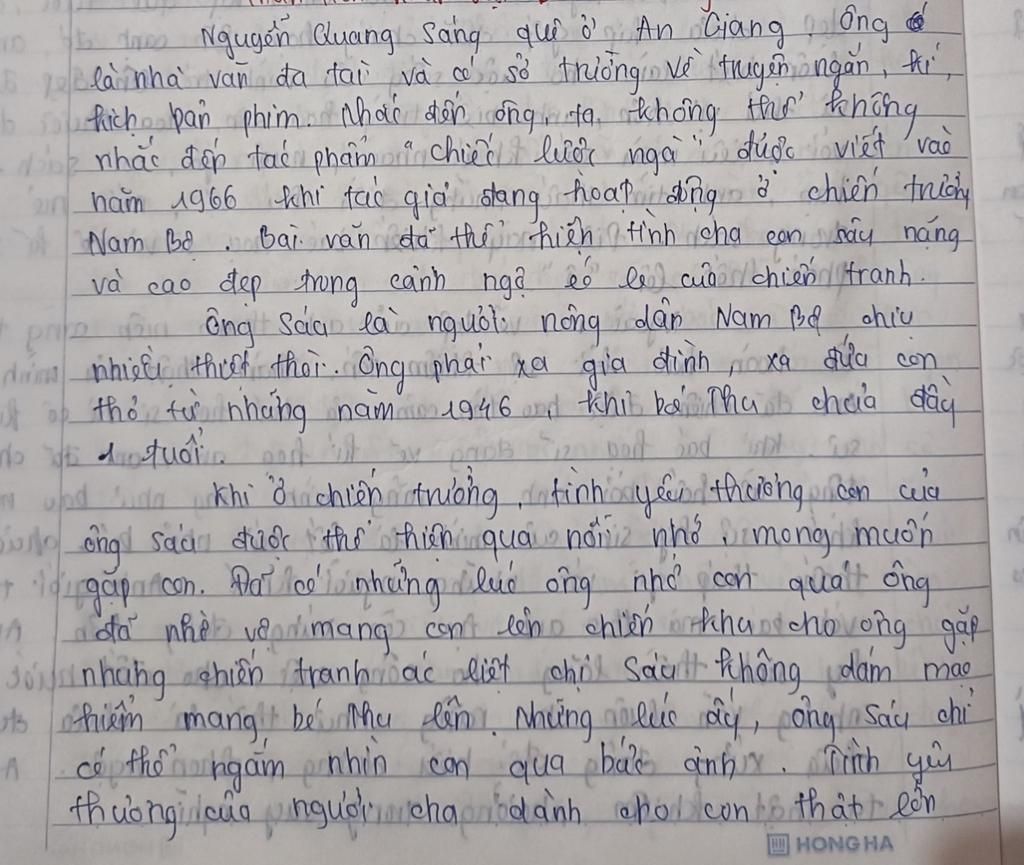 Nguyễn Quang Sáng quê ở An Giang, ông
là nhà văn đa tài và có sở trường về truyện ngắn, kí,
kịch bản phim. Nhắc đến ông, ta không thể không
nhắc đến tác phẩm "chiếc lược ngà" được viết vào
năm 1966 khi tác giả đang hoạt động ở chiến trường
Nam Bộ. Bài văn đã thể hiện tình cha con sâu nặng
và cao đẹp trong cảnh ngộ éo le của chiến tranh.
Ông Sáu là người nông dân Nam Bộ chịu
nhiều thiệt thòi. Ông phải xa gia đình, xa đứa con
thơ từ những năm 1946, khi bé Thu chưa đầy
1 tuổi.
Khi ở chiến trường, tình yêu thương con của
ông Sáu được thể hiện qua nỗi nhớ, mong muốn
gặp con. Đã có những lúc ông nhớ con quá ông
đã nhờ vợ mang con lên chiến khu cho ông gặp
nhưng chiến tranh ác liệt chị Sáu không dám mạo
hiểm mang bé Thu lên. Những lúc ấy, ông Sáu chỉ
có thể ngắm nhìn con qua bức ảnh. Tình yêu
thương của người cha dành cho con thật lớn
HONG HA